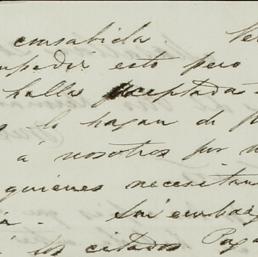 ensabida
impedir esto pero
halla aceptadas
lo hagan de p
á nosotros por
quienes necesitan
Sin embar
los citados Pag